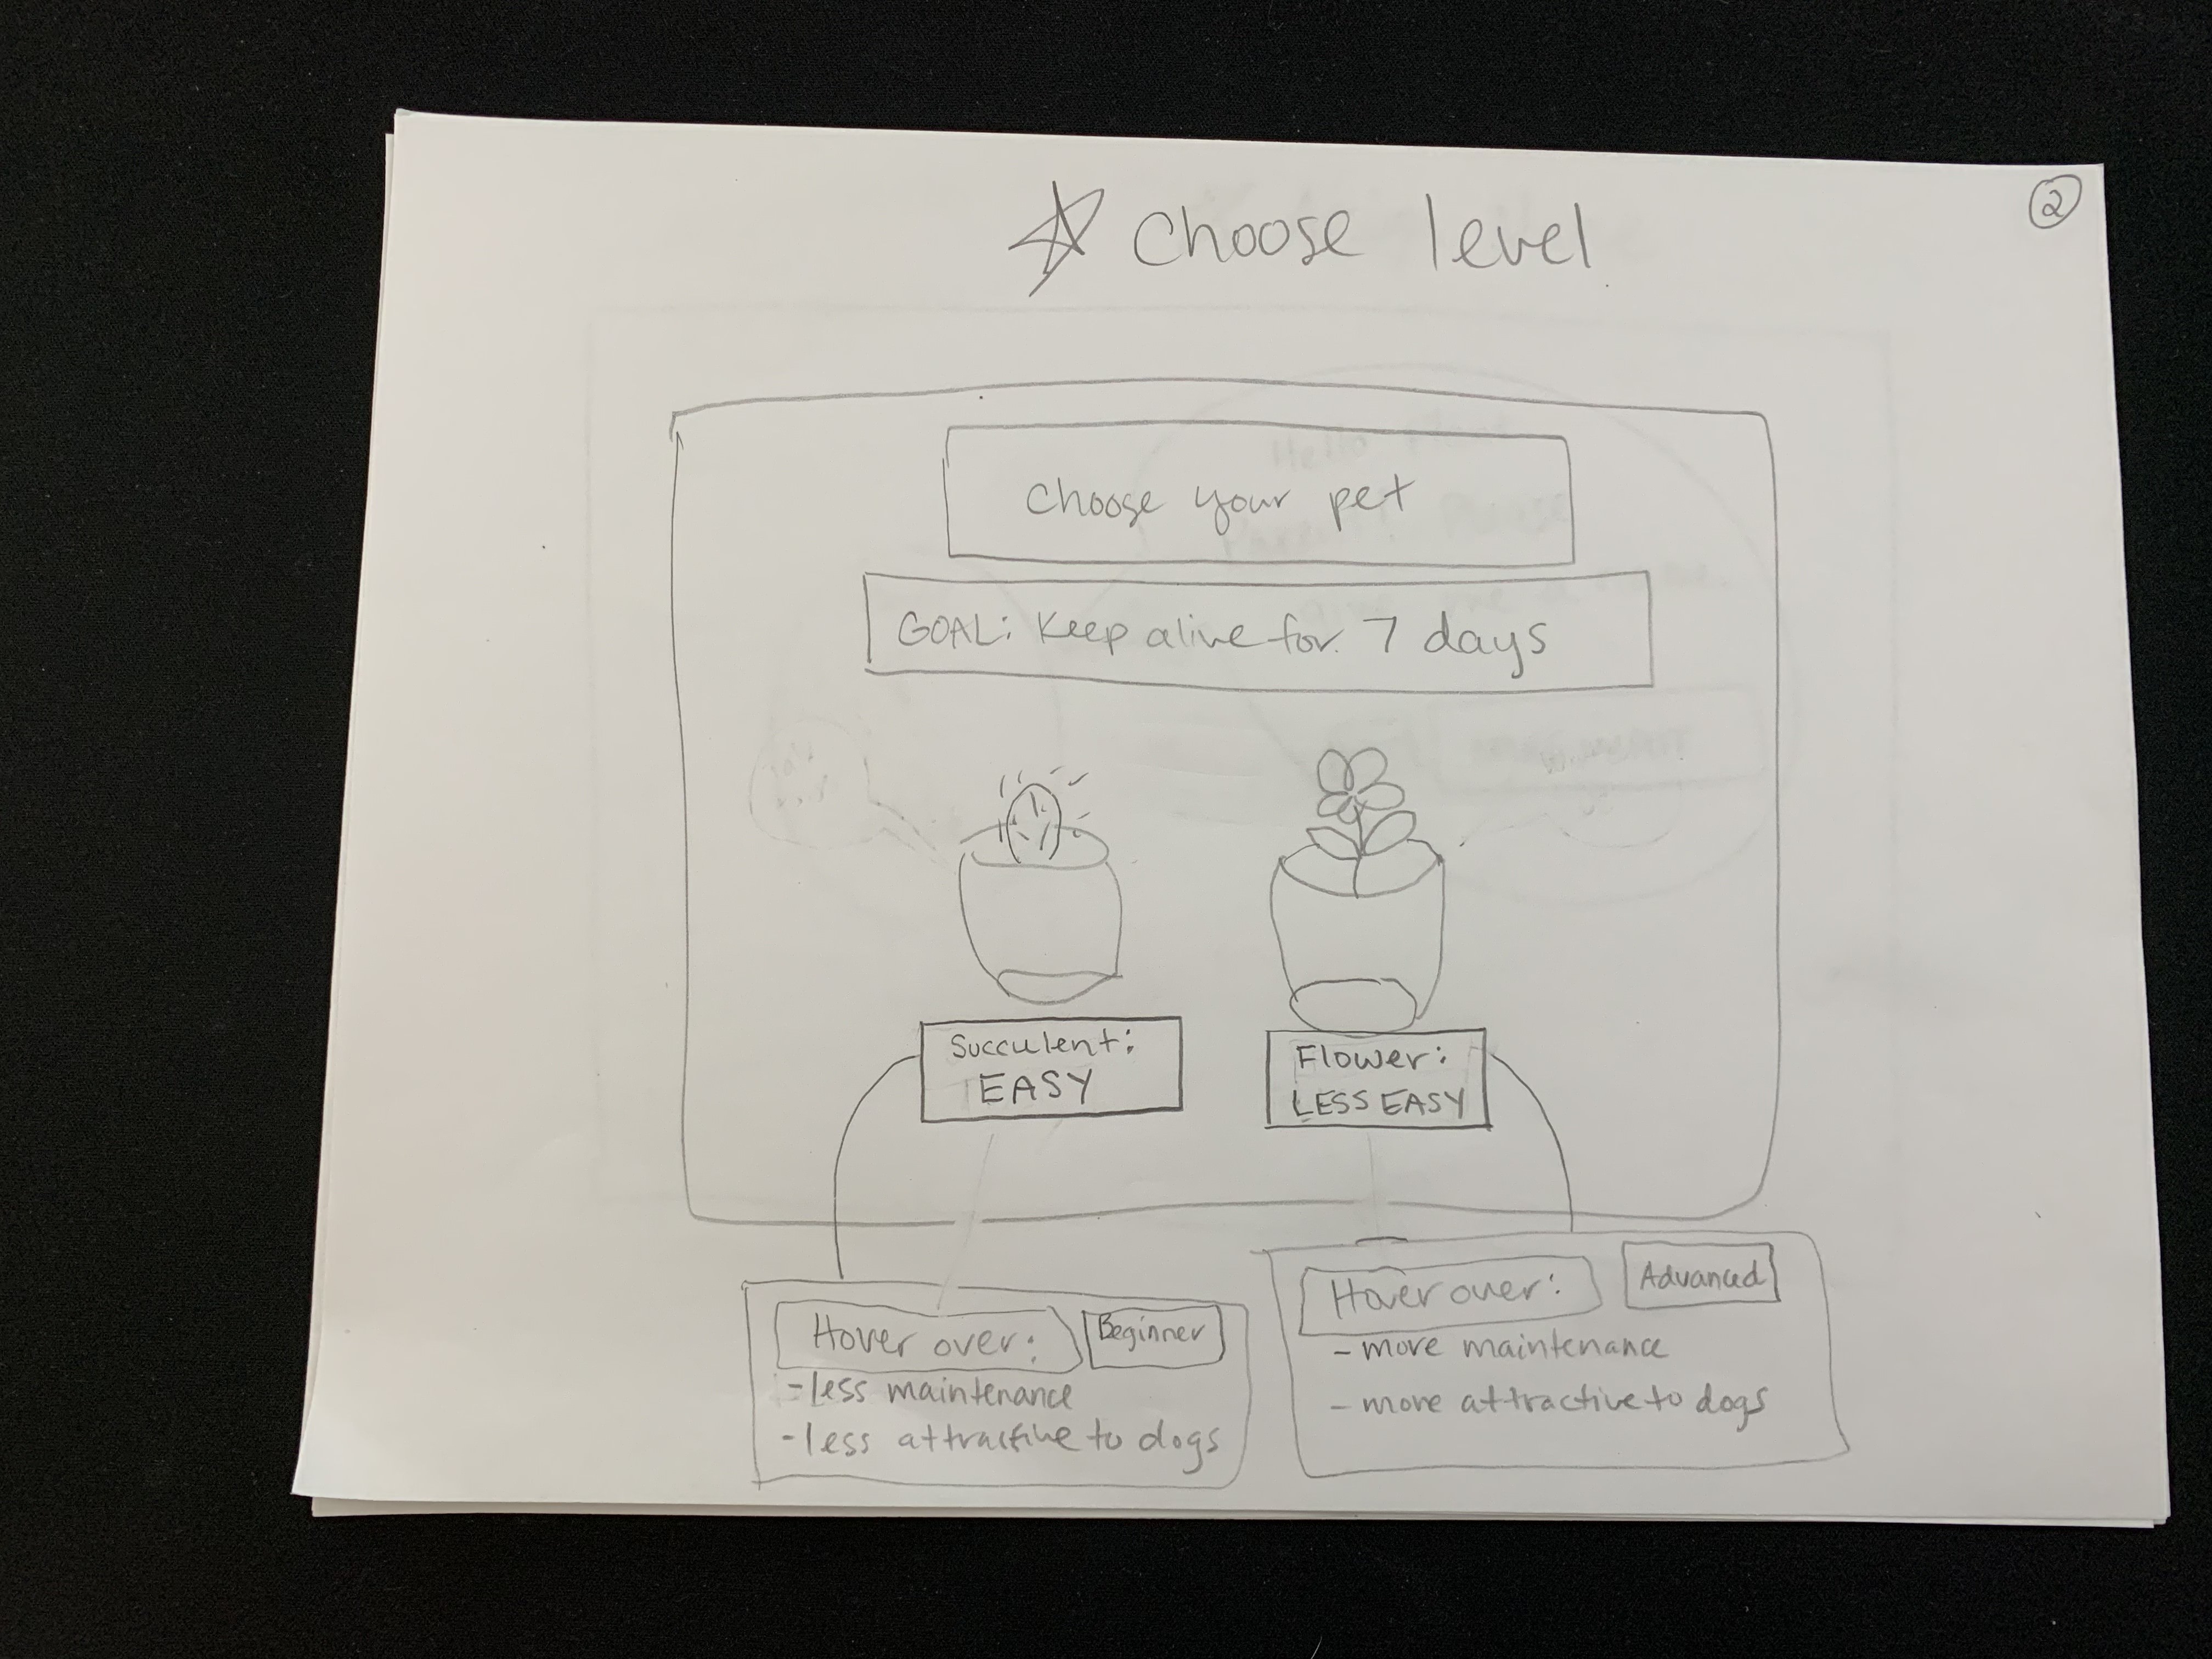 ②
☆ Choose level
Choose your pet
GOAL: Keep alive for 7 days
Succulent:
EASY
Flower:
LESS EASY
Hover over: Beginner
- less maintenance
- less attractive to dogs
Hover over: Advanced
- more maintenance
- more attractive to dogs